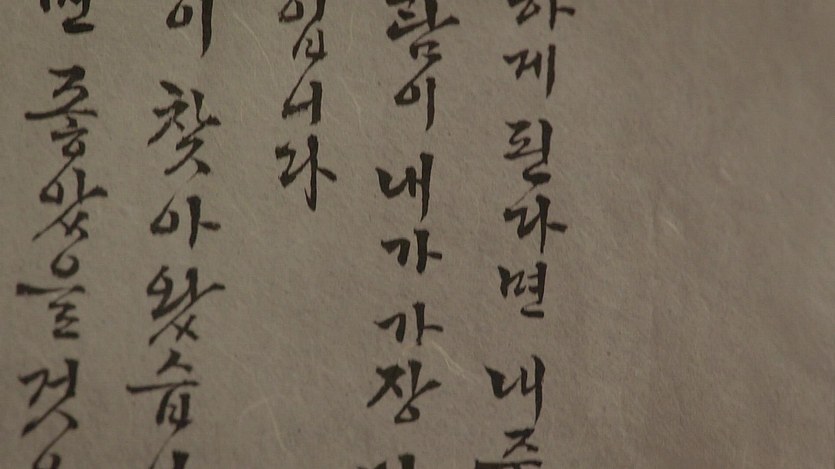 하게 된다면 내
람이 내가 가장
입니다
이 찾아왔습
면 좋았을 것